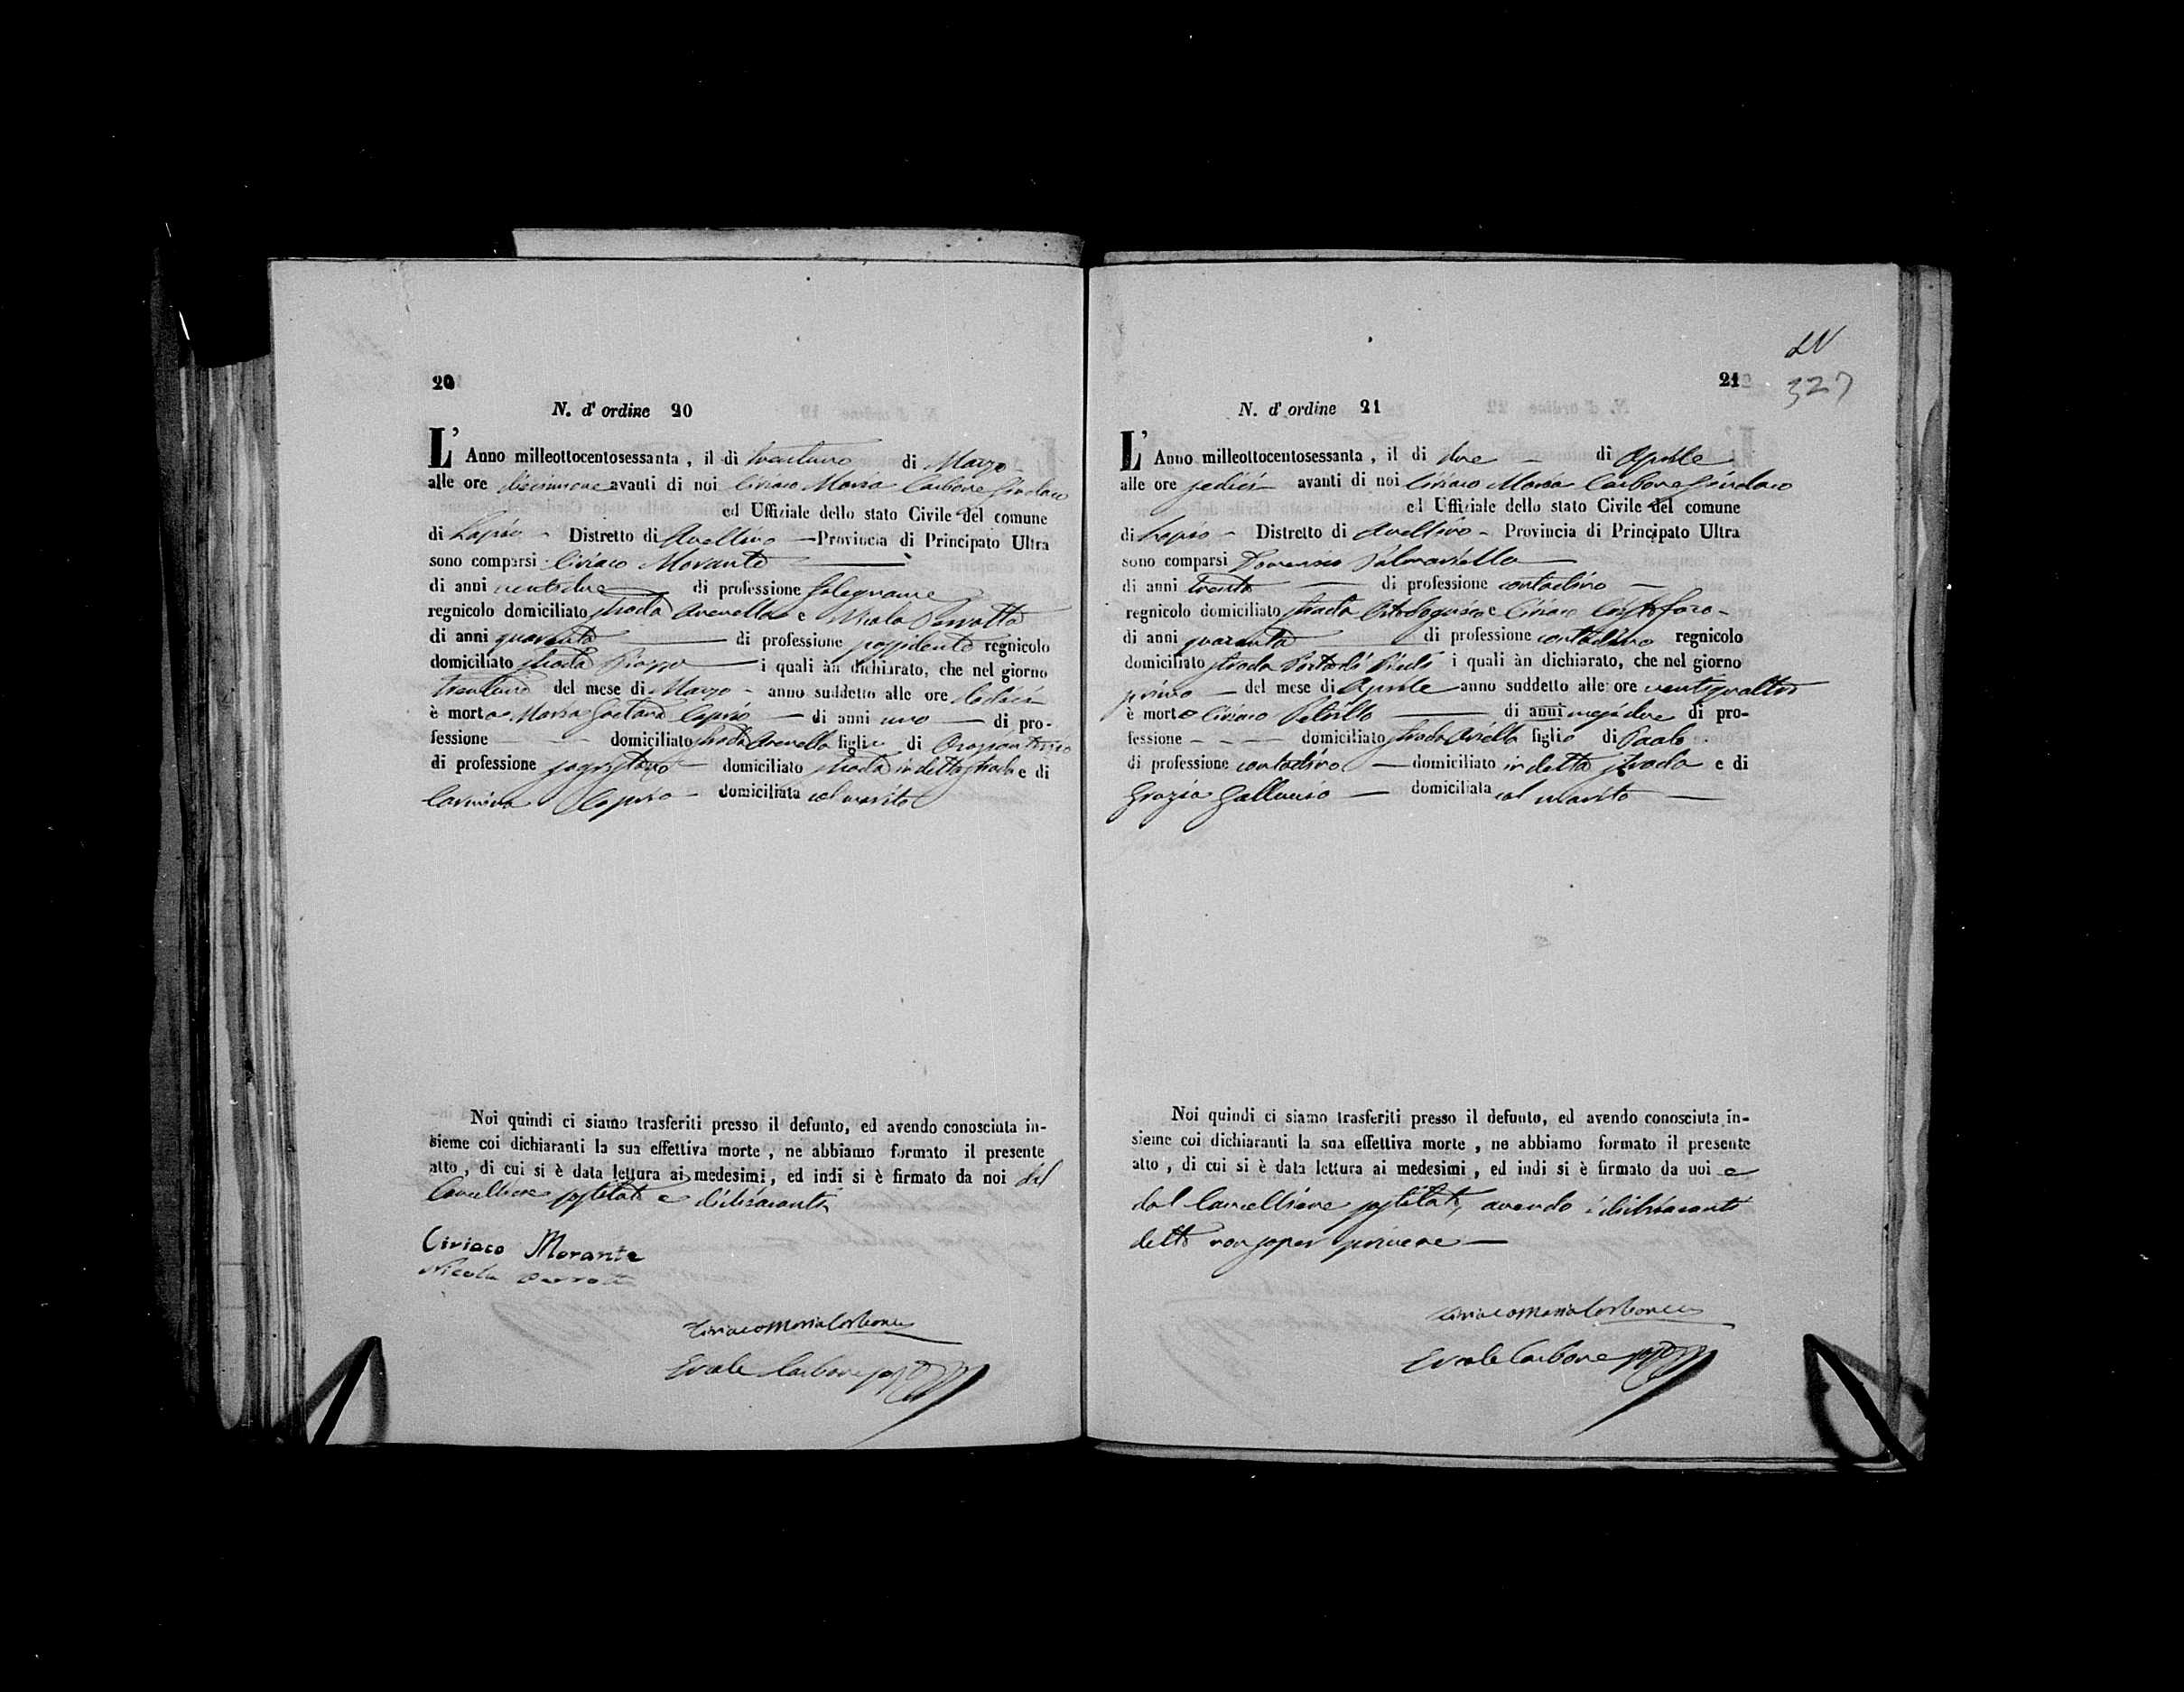 20
N. d' ordine 20
L' Anno milleottocentosessanta, il dì trentuno di Marzo
alle ore diecinnove avanti di noi Ciriaco Maria Carbone Sindaco
ed Uffiziale dello stato Civile del comune
di Lapio - Distretto di Avellino - Provincia di Principato Ultra
sono comparsi Ciriaco Morante
di anni ventidue di professione Falegname
regnicolo domiciliato strada Arenella e Nicola Perrotta
di anni quaranta di professione possidente regnicolo
domiciliato strada Piazza i quali àn dichiarato, che nel giorno
trentuno del mese di Marzo - anno suddetto alle ore dodici
è morta Maria Gaetana Caprio - di anni uno - di pro-
fessione - - domiciliato strada Arenella figlia di
di professione sagristano domiciliato strada in detta strada e di
Carmina Caprio - domiciliata col marito
Noi quindi ci siamo trasferiti presso il defunto, ed avendo conosciuta in-
sieme coi dichiaranti la sua effettiva morte, ne abbiamo formato il presente
atto, di cui si è data lettura ai medesimi, ed indi si è firmato da noi dal
Cancelliere sostituto e dichiaranti
Ciriaco Morante
Nicola Perrotta
Ciriaco Maria Carbone
Ercole Carbone
LV
21 327
N. d' ordine 21
L' Anno milleottocentosessanta, il dì due - di Aprile
alle ore sedici avanti di noi Ciriaco Maria Carbone Sindaco
ed Uffiziale dello stato Civile del comune
di Lapio - Distretto di Avellino - Provincia di Principato Ultra
sono comparsi Domenico Palmariello
di anni trenta di professione contadino
regnicolo domiciliato strada e Ciriaco Cristofaro -
di anni quaranta di professione contadino regnicolo
domiciliato strada Porta di Piedi i quali àn dichiarato, che nel giorno
primo - del mese di Aprile anno suddetto alle ore ventiquattro
è morto Ciriaco Petrillo di anni mesi due di pro-
fessione - - - domiciliato strada Ariella figlio di Paolo
di professione contadino - domiciliato in detta strada e di
Grazia Galluccio - domiciliata col marito
Noi quindi ci siamo trasferiti presso il defunto, ed avendo conosciuta in-
sieme coi dichiaranti la sua effettiva morte, ne abbiamo formato il presente
atto, di cui si è data lettura ai medesimi, ed indi si è firmato da noi e
dal Cancelliere sostituto, avendo i dichiaranti
detto non saper scrivere
Ciriaco Maria Carbone
Ercole Carbone